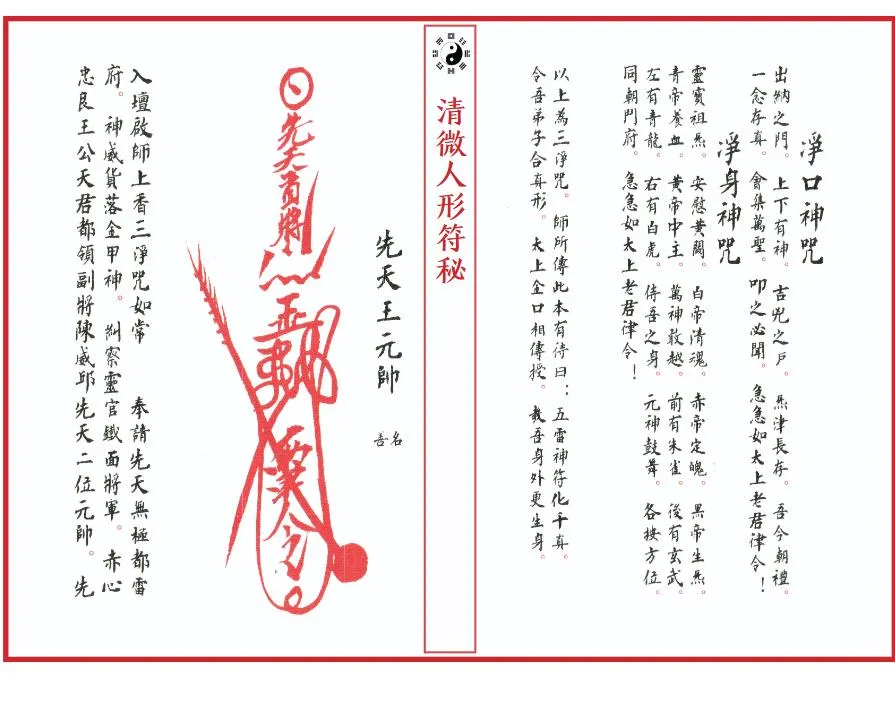 淨口神咒
出納之門。上下有神。吉兇之戶。炁津長存。吾今朝禮。
一念存真。會集萬聖。叩之必聞。急急如太上老君律令！
淨身神咒
靈寶祖炁。安慰黃闕。白帝清魂。赤帝定魄。黑帝生炁。
青帝養血。黃帝中主。萬神敢越。前有朱雀。後有玄武。
左有青龍。右有白虎。侍吾之身。元神鼓舞。各按方位。
同朝鬥府。急急如太上老君律令！
以上為三淨咒。師所傳此本有待曰：五雷神符化千真。
令吾弟子合真形。太上金口相傳授。教吾身外更生身。
清微人形符秘
先天王元帥
名善
先天
將
令
入壇啟師上香三淨咒如常　奉請先天無極都雷
府。神威貨落金甲神。糾察靈官鐵面將軍。赤心
忠良王公天君都領副將陳威邱先天二位元帥。先